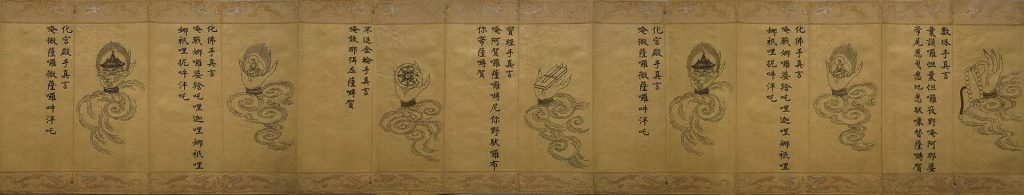 數珠手真言
曩謨囉怛曩怛囉夜野唵阿那婆
帝尾惹曳悉地悉馱㗚替薩嚩賀
化佛手真言
唵戰娜囉婆捨吒哩迦哩娜祇哩
娜祇哩抳吽泮吒
化宮殿手真言
唵微薩囉微薩囉吽泮吒
寶經手真言
唵阿賀囉薩囉嚩尼你野馱囉布
你帝薩嚩賀
不退金輪手真言
唵設那弭左薩嚩賀
化佛手真言
唵戰娜囉婆捨吒哩迦哩娜祇哩
娜祇哩抳吽泮吒
化宮殿手真言
唵微薩囉微薩囉吽泮吒